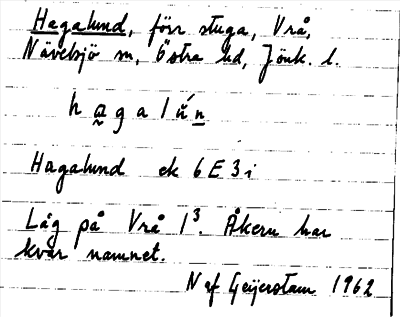 Hagalund, förr stuga, Vrå,
Nävelsjö sn, Östra hd, Jönk. l.
hagalún
Hagalund ek 6E3i
Låg på Vrå 1³. Åkern har
kvar namnet.
N af Geijerstam 1962